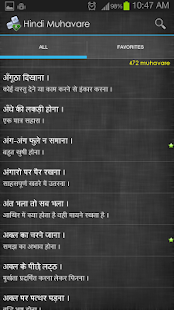 10:47 AM
Hindi Muhavare
ALL
FAVORITES
472 muhavare
अँगूठा दिखाना ।
कोई वस्तु देने या काम करने से इंकार करना ।
अँधे की लकड़ी होना ।
एक मात्र सहारा ।
अंग-अंग फूले न समाना ।
बहुत खुशी होना ।
अंगारो पर पैर रखना ।
साहसपूर्ण खतरे में उतरना ।
अंत भला तो सब भला ।
आखिर में क्या होता है, वही मायने रखता है ।
अक्ल का चरने जाना ।
समझ का अभाव होना ।
अक्ल के पीछे लट्ठ ।
मूर्खता प्रदर्शित करना लेकर फिरना ।
अक्ल पर पत्थर पड़ना ।
बुद्धि नष्ट होना ।